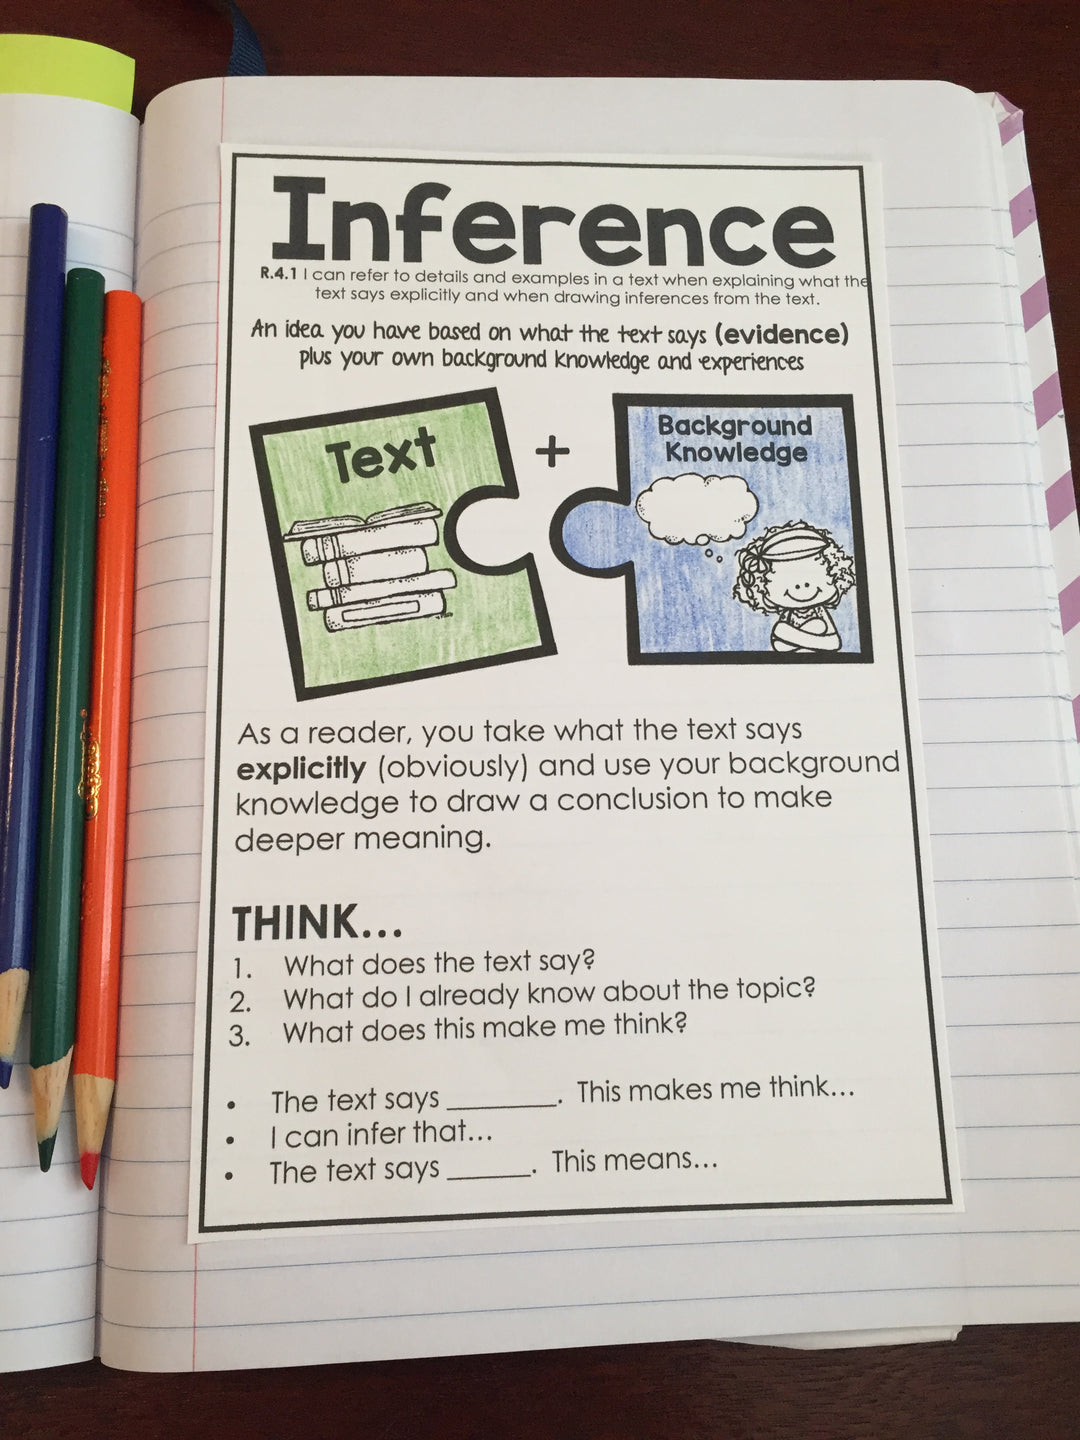 Inference
R.4.1 I can refer to details and examples in a text when explaining what the
text says explicitly and when drawing inferences from the text.
An idea you have based on what the text says (evidence)
plus your own background knowledge and experiences
Text
+
Background
Knowledge
As a reader, you take what the text says
explicitly (obviously) and use your background
knowledge to draw a conclusion to make
deeper meaning.
THINK...
1. What does the text say?
2. What do I already know about the topic?
3. What does this make me think?
• The text says ________. This makes me think...
• I can infer that...
• The text says ______. This means...